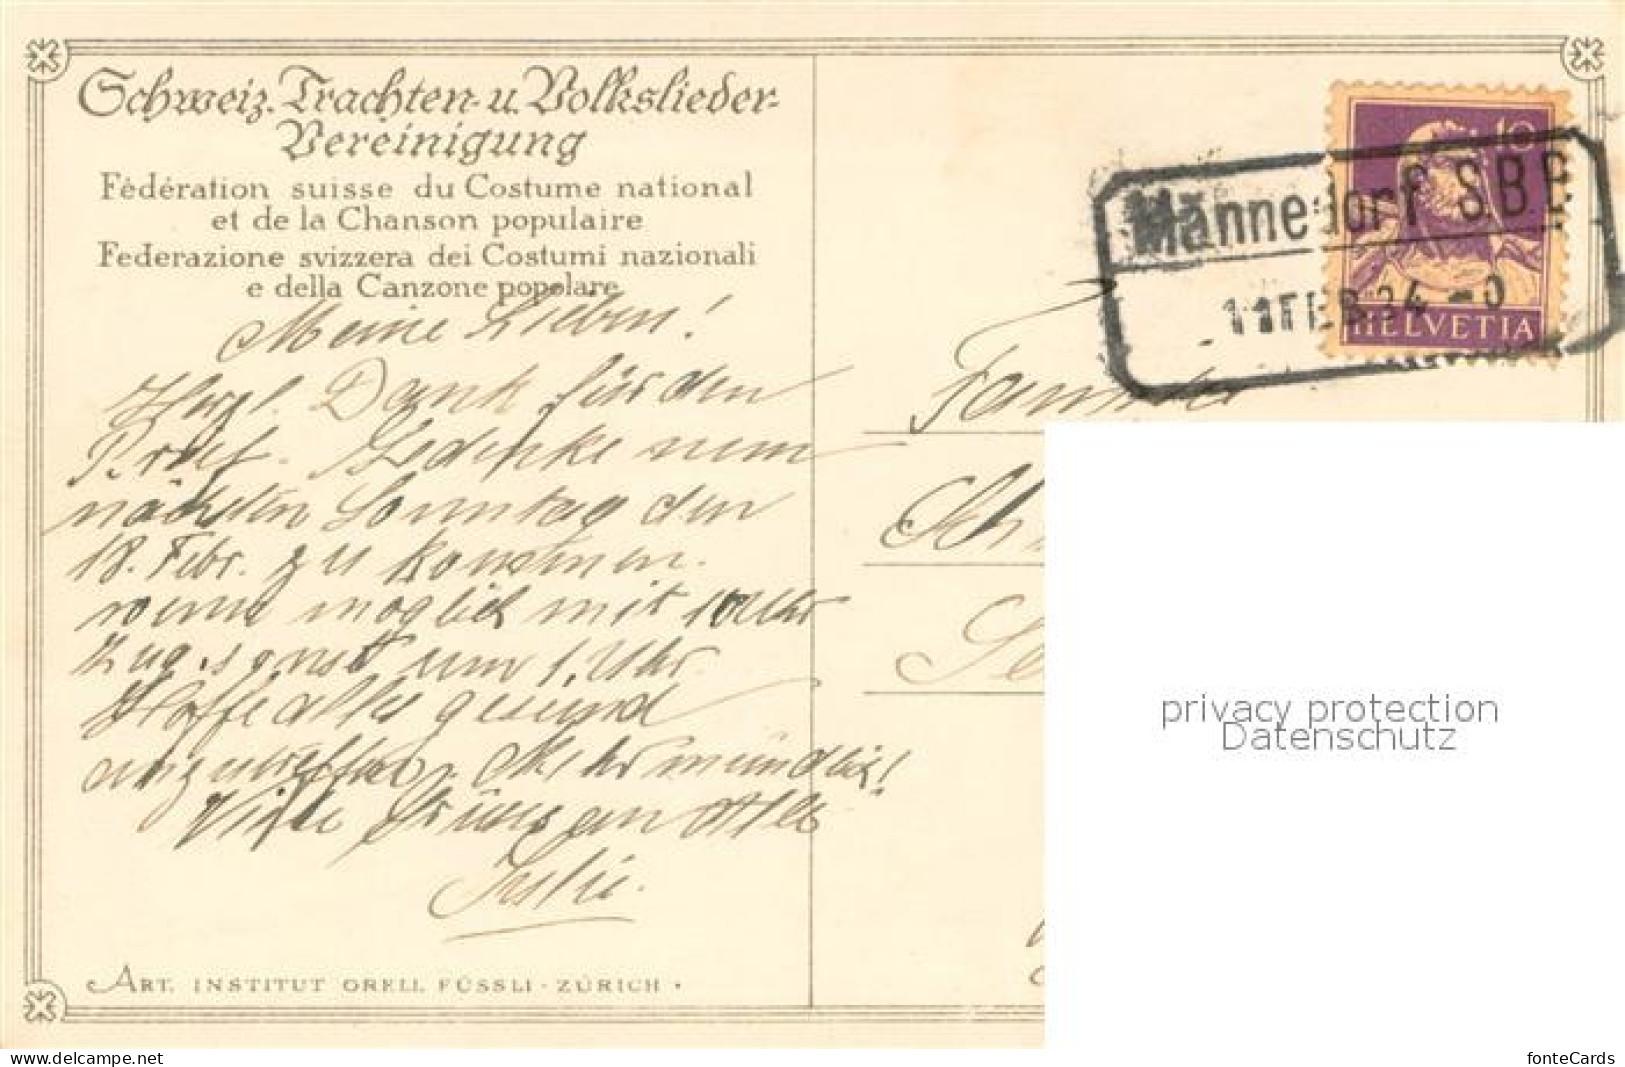 Schweiz. Trachten- u. Volkslieder-
Vereinigung
Fédération suisse du Costume national
et de la Chanson populaire
Federazione svizzera dei Costumi nazionali
e della Canzone popolare
Meine Lieben!
Herzl. Dank für den
Brief. Gedenke nun
nächsten Sonntag den
18. Febr. zu kommen.
wenn möglich mit 10 Uhr
Zug, sonst um 1 Uhr.
Hoffe alles gesund
anzutreffen. Mehr mündlich!
Viele Grüsse an Alle
ART. INSTITUT ORELL FÜSSLI - ZÜRICH •
10
HELVETIA
Männedorf S.B.B.
11 FEB. 34
Familie
privacy protection
Datenschutz
www.delcampe.net
fonteCards